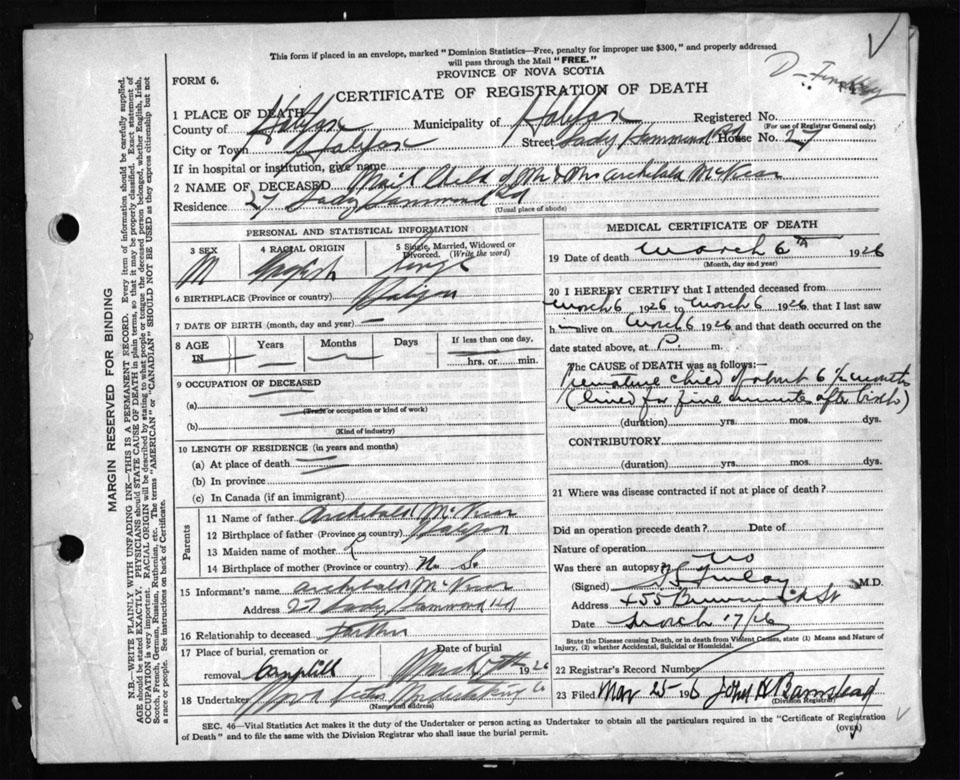 This form if placed in an envelope, marked "Dominion Statistics—Free, penalty for improper use $300," and properly addressed
will pass through the Mail "FREE."
PROVINCE OF NOVA SCOTIA
FORM 6.
CERTIFICATE OF REGISTRATION OF DEATH
MARGIN RESERVED FOR BINDING
N.B.—WRITE PLAINLY WITH UNFADING INK—THIS IS A PERMANENT RECORD. Every item of information should be carefully supplied.
AGE should be stated EXACTLY. PHYSICIANS should STATE CAUSE OF DEATH in plain terms, so that it may be properly classified. Exact statement of
OCCUPATION is very important. RACIAL ORIGIN will be described by stating to what people or tongue the deceased person belonged, whether English, Irish,
Scotch, French, German, Russian, Ruthenian, etc. The terms "AMERICAN" or "CANADIAN" SHOULD NOT BE USED as they express citizenship but not
a race or people. See instructions on back of Certificate.
1 PLACE OF DEATH
County of Halifax Municipality of Halifax Registered No.
(For use of Registrar General only)
City or Town Halifax Street Lady Hammond Rd House No. 27
If in hospital or institution, give name
2 NAME OF DECEASED Child of Mr & Mrs Archibald
Residence 27 Lady Hammond Rd
(Usual place of abode)
PERSONAL AND STATISTICAL INFORMATION
3 SEX 4 RACIAL ORIGIN 5 Single, Married, Widowed or Divorced. (Write the word)
M English Single
6 BIRTHPLACE (Province or country) Halifax
7 DATE OF BIRTH (month, day and year) —
8 AGE IN Years Months Days If less than one day,
hrs. or min.
9 OCCUPATION OF DECEASED
(a)
(Trade or occupation or kind of work)
(b)
(Kind of industry)
10 LENGTH OF RESIDENCE (in years and months)
(a) At place of death
(b) In province
(c) In Canada (if an immigrant)
Parents
11 Name of father Archibald
12 Birthplace of father (Province or country) Halifax
13 Maiden name of mother
14 Birthplace of mother (Province or country) N. S.
15 Informant's name Archibald
Address 27 Lady Hammond Rd
16 Relationship to deceased Father
17 Place of burial, cremation or removal Date of burial
March 1926
18 Undertaker Undertaking Co
(Name and address)
MEDICAL CERTIFICATE OF DEATH
19 Date of death March 6th 1926
(Month, day and year)
20 I HEREBY CERTIFY that I attended deceased from
March 6 1926 to March 6 1926 that I last saw
h— alive on March 6 1926 and that death occurred on
date stated above, at P. m.
The CAUSE OF DEATH was as follows:—
Premature child of about 6 ½ months
(lived for five minute after birth)
(duration) yrs. mos. dys.
CONTRIBUTORY
(duration) yrs. mos. dys.
21 Where was disease contracted if not at place of death?
Did an operation precede death? Date of
Nature of operation
Was there an autopsy? no
(Signed) Finlay M.D.
Address 455 Brunswick St
Date March 17/26
State the Disease causing Death, or in death from Violent Causes, state (1) Means and Nature of
Injury, (2) whether Accidental, Suicidal or Homicidal.
22 Registrar's Record Number
23 Filed Mar 25 1926 John H Barnstead
(Division Registrar)
SEC. 46—Vital Statistics Act makes it the duty of the Undertaker or person acting as Undertaker to obtain all the particulars required in the "Certificate of Registration
of Death" and to file the same with the Division Registrar who shall issue the burial permit.
(OVER)